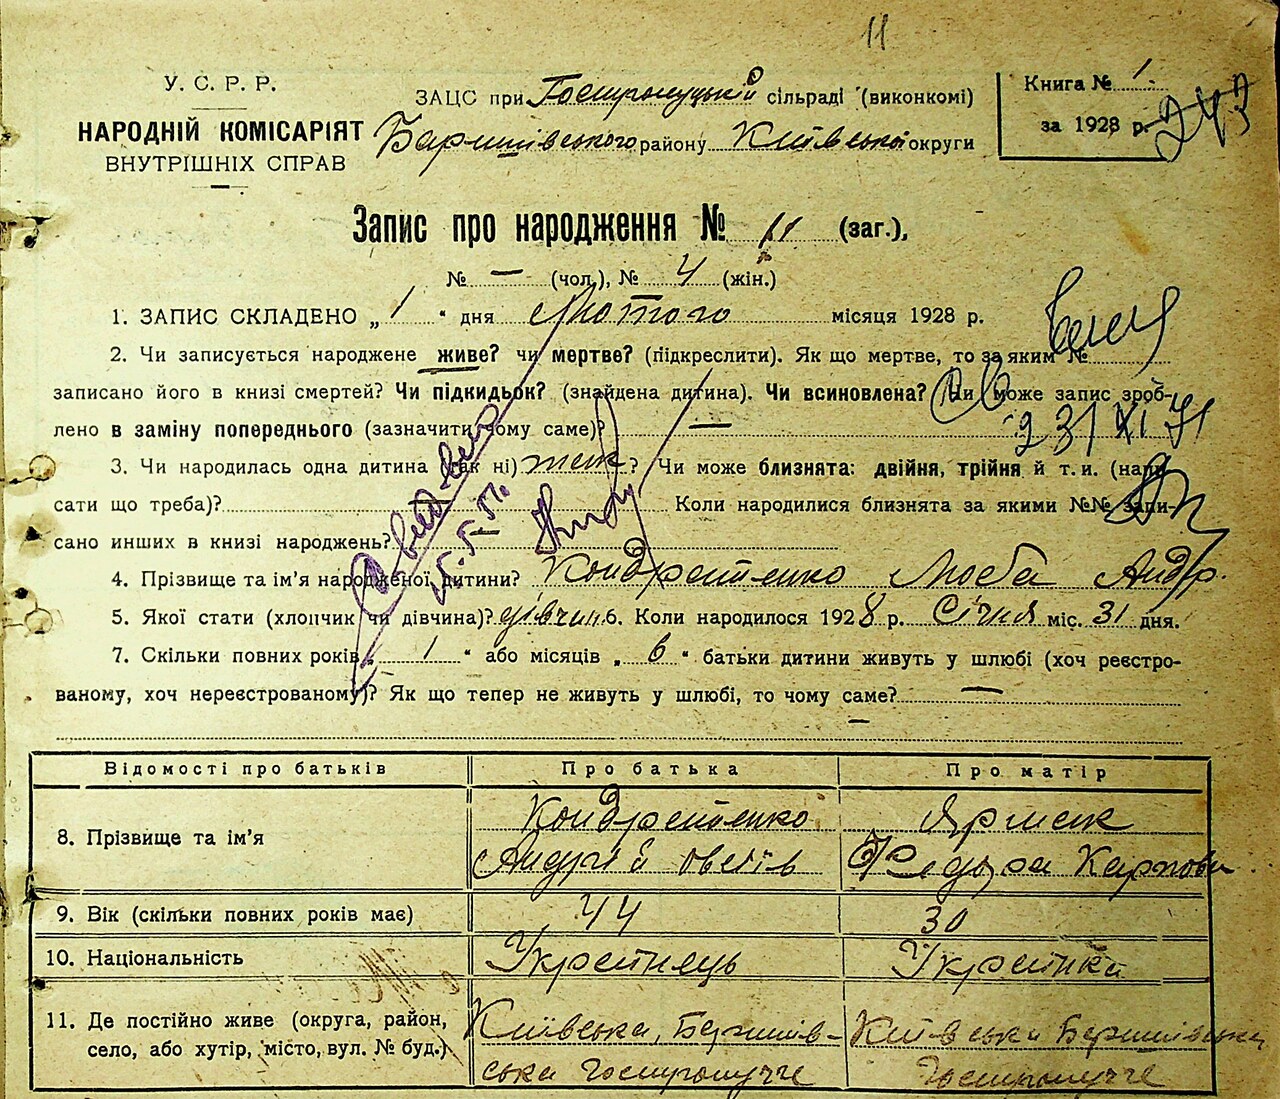 11
У. С. Р. Р.
НАРОДНІЙ КОМІСАРІЯТ
ВНУТРІШНІХ СПРАВ
ЗАЦС при Гостролуцькій сільраді (виконкомі)
Баришівського району Київської округи
Книга № 1
за 1928 р.
243
Запис про народження № 11 (заг.),
№ — (чол.), № 4 (жін.)
1. ЗАПИС СКЛАДЕНО „ 1 “ дня Лютого місяця 1928 р.
2. Чи записується народжене живе? чи мертве? (підкреслити). Як що мертве, то за яким №
записано його в книзі смертей? Чи підкидьок? (знайдена дитина). Чи всиновлена? Чи може запис зроб-
лено в заміну попереднього (зазначити чому саме)? —
23/XI 71
3. Чи народилась одна дитина (так ні) так? Чи може близнята: двійня, трійня й т. и. (напи-
сати що треба)? Коли народилися близнята за якими №№ запи-
сано инших в книзі народжень?
4. Прізвище та ім’я народженої дитини? Кондратенко Люба Андр.
5. Якої стати (хлопчик чи дівчина)? дівчин. 6. Коли народилося 1928 р. Січня міс. 31 дня.
7. Скільки повних років „ 1 “ або місяців „ 6 “ батьки дитини живуть у шлюбі (хоч реєстро-
ваному, хоч нереєстрованому)? Як що тепер не живуть у шлюбі, то чому саме? —
Відомості про батьків Про батька Про матір
8. Прізвище та ім’я
Кондратенко
Андрій
Ярмак
Федора Карпови
9. Вік (скільки повних років має) 44 30
10. Національність Українець Українка
11. Де постійно живе (округа, район,
село, або хутір, місто, вул. № буд.)
Київська, Баришів-
ська Гостролучче
Київська Баришівська
Гостролучче